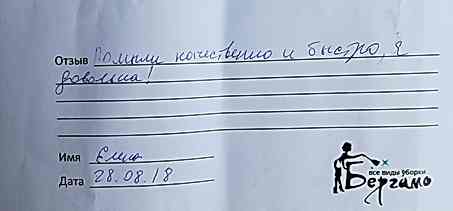 Отзыв Помыли качественно и быстро, я
довольна!
Имя Елена
Дата 28.08.18
все виды уборки
Бергамо